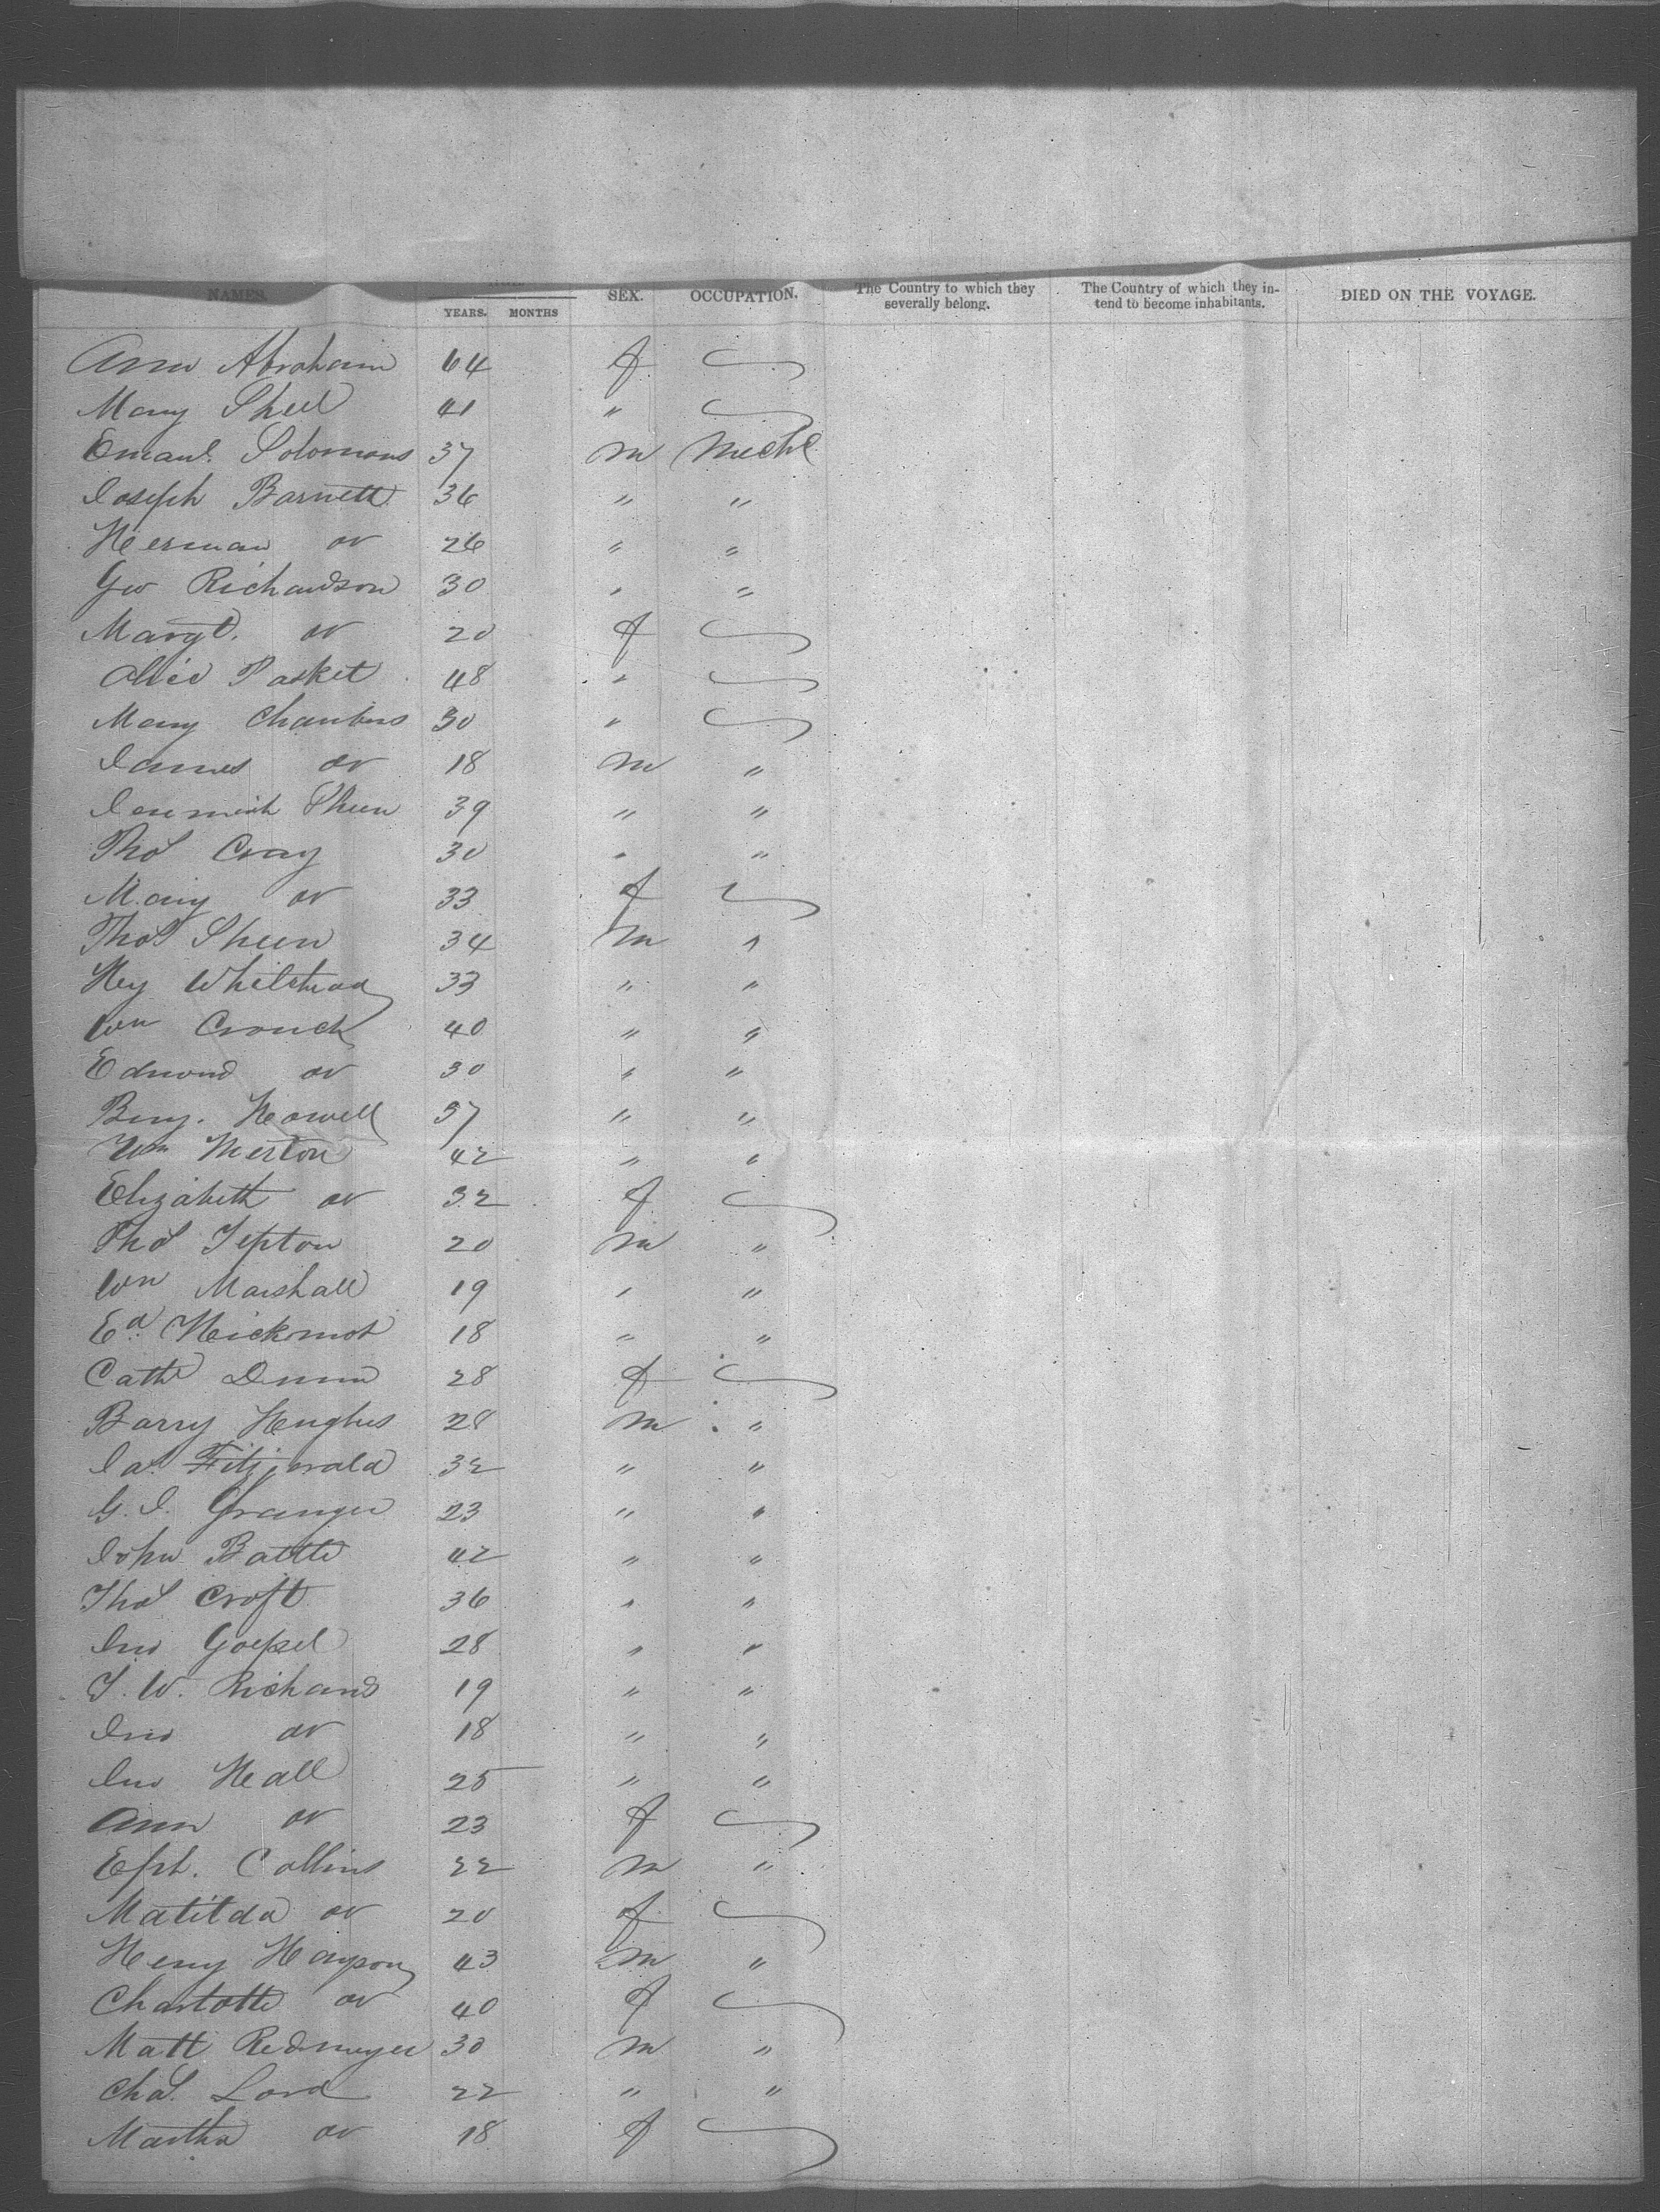 NAMES. SEX. OCCUPATION. The Country to which they severally belong. The Country of which they intend to become inhabitants. DIED ON THE VOYAGE.
YEARS. MONTHS
Ann Abraham 64 f
Mary Sheel 41 "
Emanl. Solomons 37 m Mechc
Joseph Barnett 36 " "
Herman do 26 " "
Geo Richardson 30 " "
Margt. do 20 f
Alice Pasket 48 "
Mary Chambers 30 "
James do 18 m "
Jeremiah Sheen 39 " "
Thos Cray 30 " "
Mary do 33 f
Thos Sheen 34 m "
Hey Whilstead 33 " "
Wm Crouch 40 " "
Edmond do 30 " "
Benj. Howell 37 " "
Wm Merton 42 " "
Elizabeth do 32 f
Thos Tepton 20 m "
Wm Marshall 19 " "
Ed. Hickmot 18 " "
Cathe Dunn 28 f
Barry Hughes 28 m "
Jas. Fitzjerald 32 " "
G. J. Granger 23 " "
John Battle 42 " "
Thos Croft 36 " "
Jno Goepel 28 " "
T. W. Richards 19 " "
Jno do 18 " "
Jno Hall 25 " "
Ann do 23 f
Eph. Collins 22 m "
Matilda do 20 f
Henry Hayson 43 m "
Charlotte do 40 f
Matt Redmeyer 30 m "
Chas. Lord 22 " "
Martha do 18 f